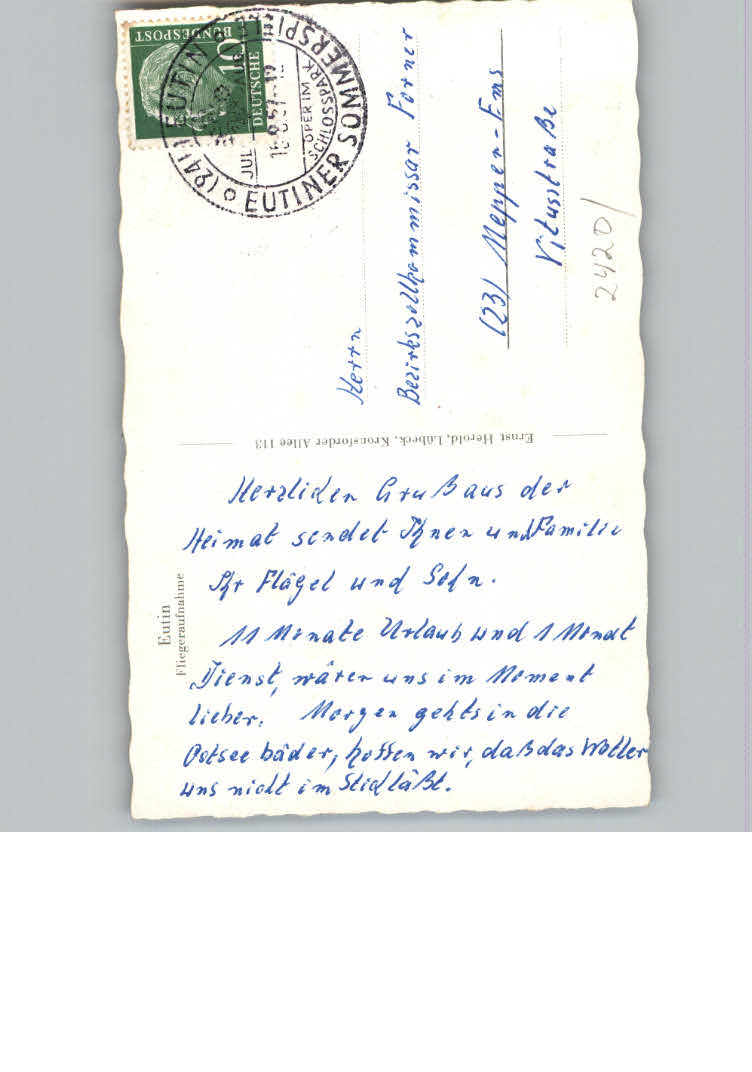 Herzlichen Gruß aus der
Heimat sendet Ihnen und Familie
Ihr Flägel und Sohn.
11 Monate Urlaub und 1 Monat
Dienst, wären uns im Moment
lieber. Morgen gehts in die
Ostseebäder, hoffen wir, daß das Wetter
uns nicht im Stich läßt.
Eutin
Fliegeraufnahme
Ernst Herold, Lübeck, Kronsforder Allee 113
Herrn
Bezirkszollkommissar Forner
(23) Meppen-Ems
Vitusstraße
2420/
DEUTSCHE
BUNDESPOST
10
(24) EUTIN
EUTINER SOMMERSPIELE
OPER IM
SCHLOSSPARK
JUL